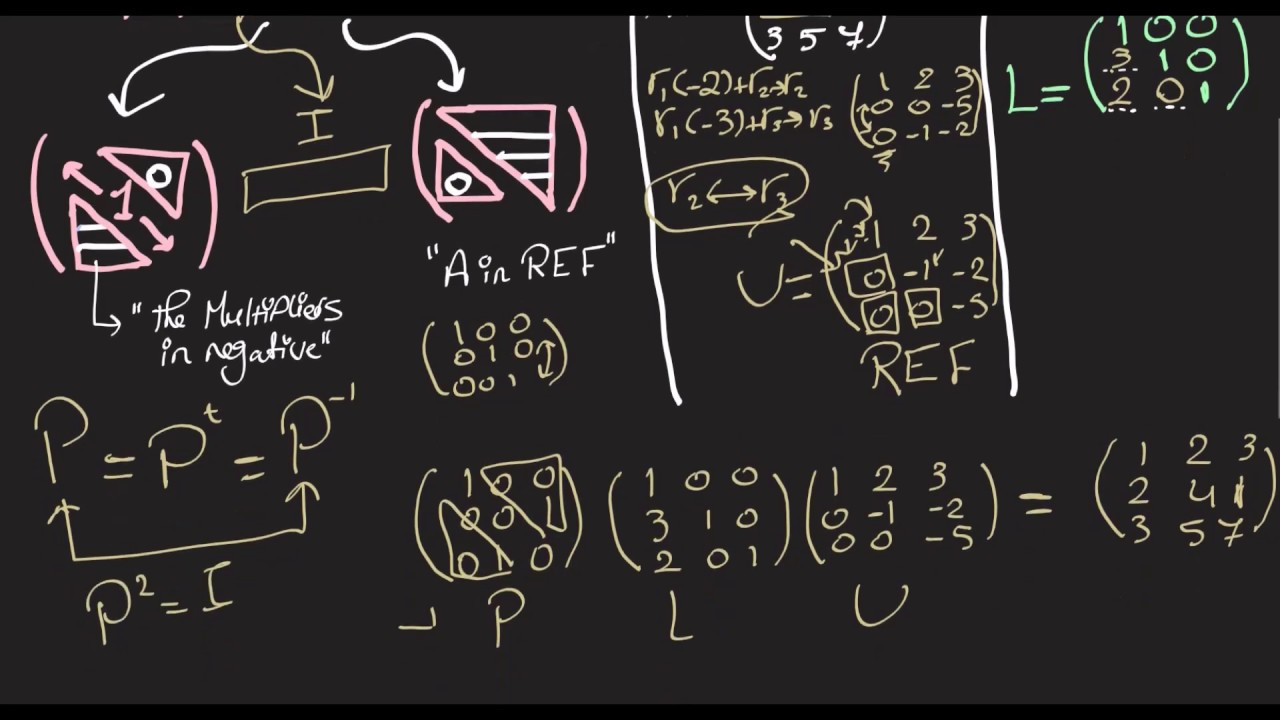 I
1
0
0
"the Multipliers
in negative"
"A in REF"
1 0 0
0 1 0
0 0 1
P = Pᵗ = P⁻¹
P² = I
3 5 7
r₁(-2)+r₂→r₂
r₁(-3)+r₃→r₃
1 2 3
0 0 -5
0 -1 -2
r₂ ↔ r₃
U =
1 2 3
0 -1 -2
0 0 -5
REF
L =
1 0 0
3 1 0
2 0 1
1 0 0
0 0 1
0 1 0
1 0 0
3 1 0
2 0 1
1 2 3
0 -1 -2
0 0 -5
=
1 2 3
2 4 1
3 5 7
P L U